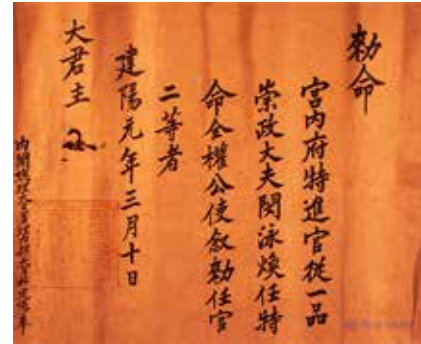 勅命
宮內府特進官從一品
崇政大夫閔泳煥任特
命全權公使敘勅任官
二等者
建陽元年三月十日
大君主